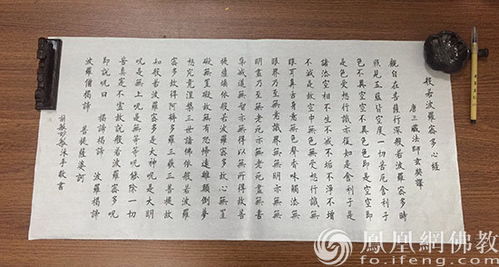 般若波羅蜜多心經
唐三藏法師玄奘譯
觀自在菩薩行深般若波羅蜜多時
照見五蘊皆空度一切苦厄舍利子
色不異空空不異色色即是空空即
是色受想行識亦復如是舍利子是
諸法空相不生不滅不垢不淨不增
不減是故空中無色無受想行識無
眼耳鼻舌身意無色聲香味觸法無
眼界乃至無意識界無無明亦無無
明盡乃至無老死亦無老死盡無苦
集滅道無智亦無得以無所得故菩
提薩埵依般若波羅蜜多故心無罣
礙無罣礙故無有恐怖遠離顛倒夢
想究竟涅槃三世諸佛依般若波羅
蜜多故得阿耨多羅三藐三菩提故
知般若波羅蜜多是大神呪是大明
呪是無上呪是無等等呪能除一切
苦真實不虛故說般若波羅蜜多呪
即說呪曰 揭諦揭諦 波羅揭諦
波羅僧揭諦 菩提薩婆訶
沐手敬書
鳳凰網佛教
fo.ifeng.com